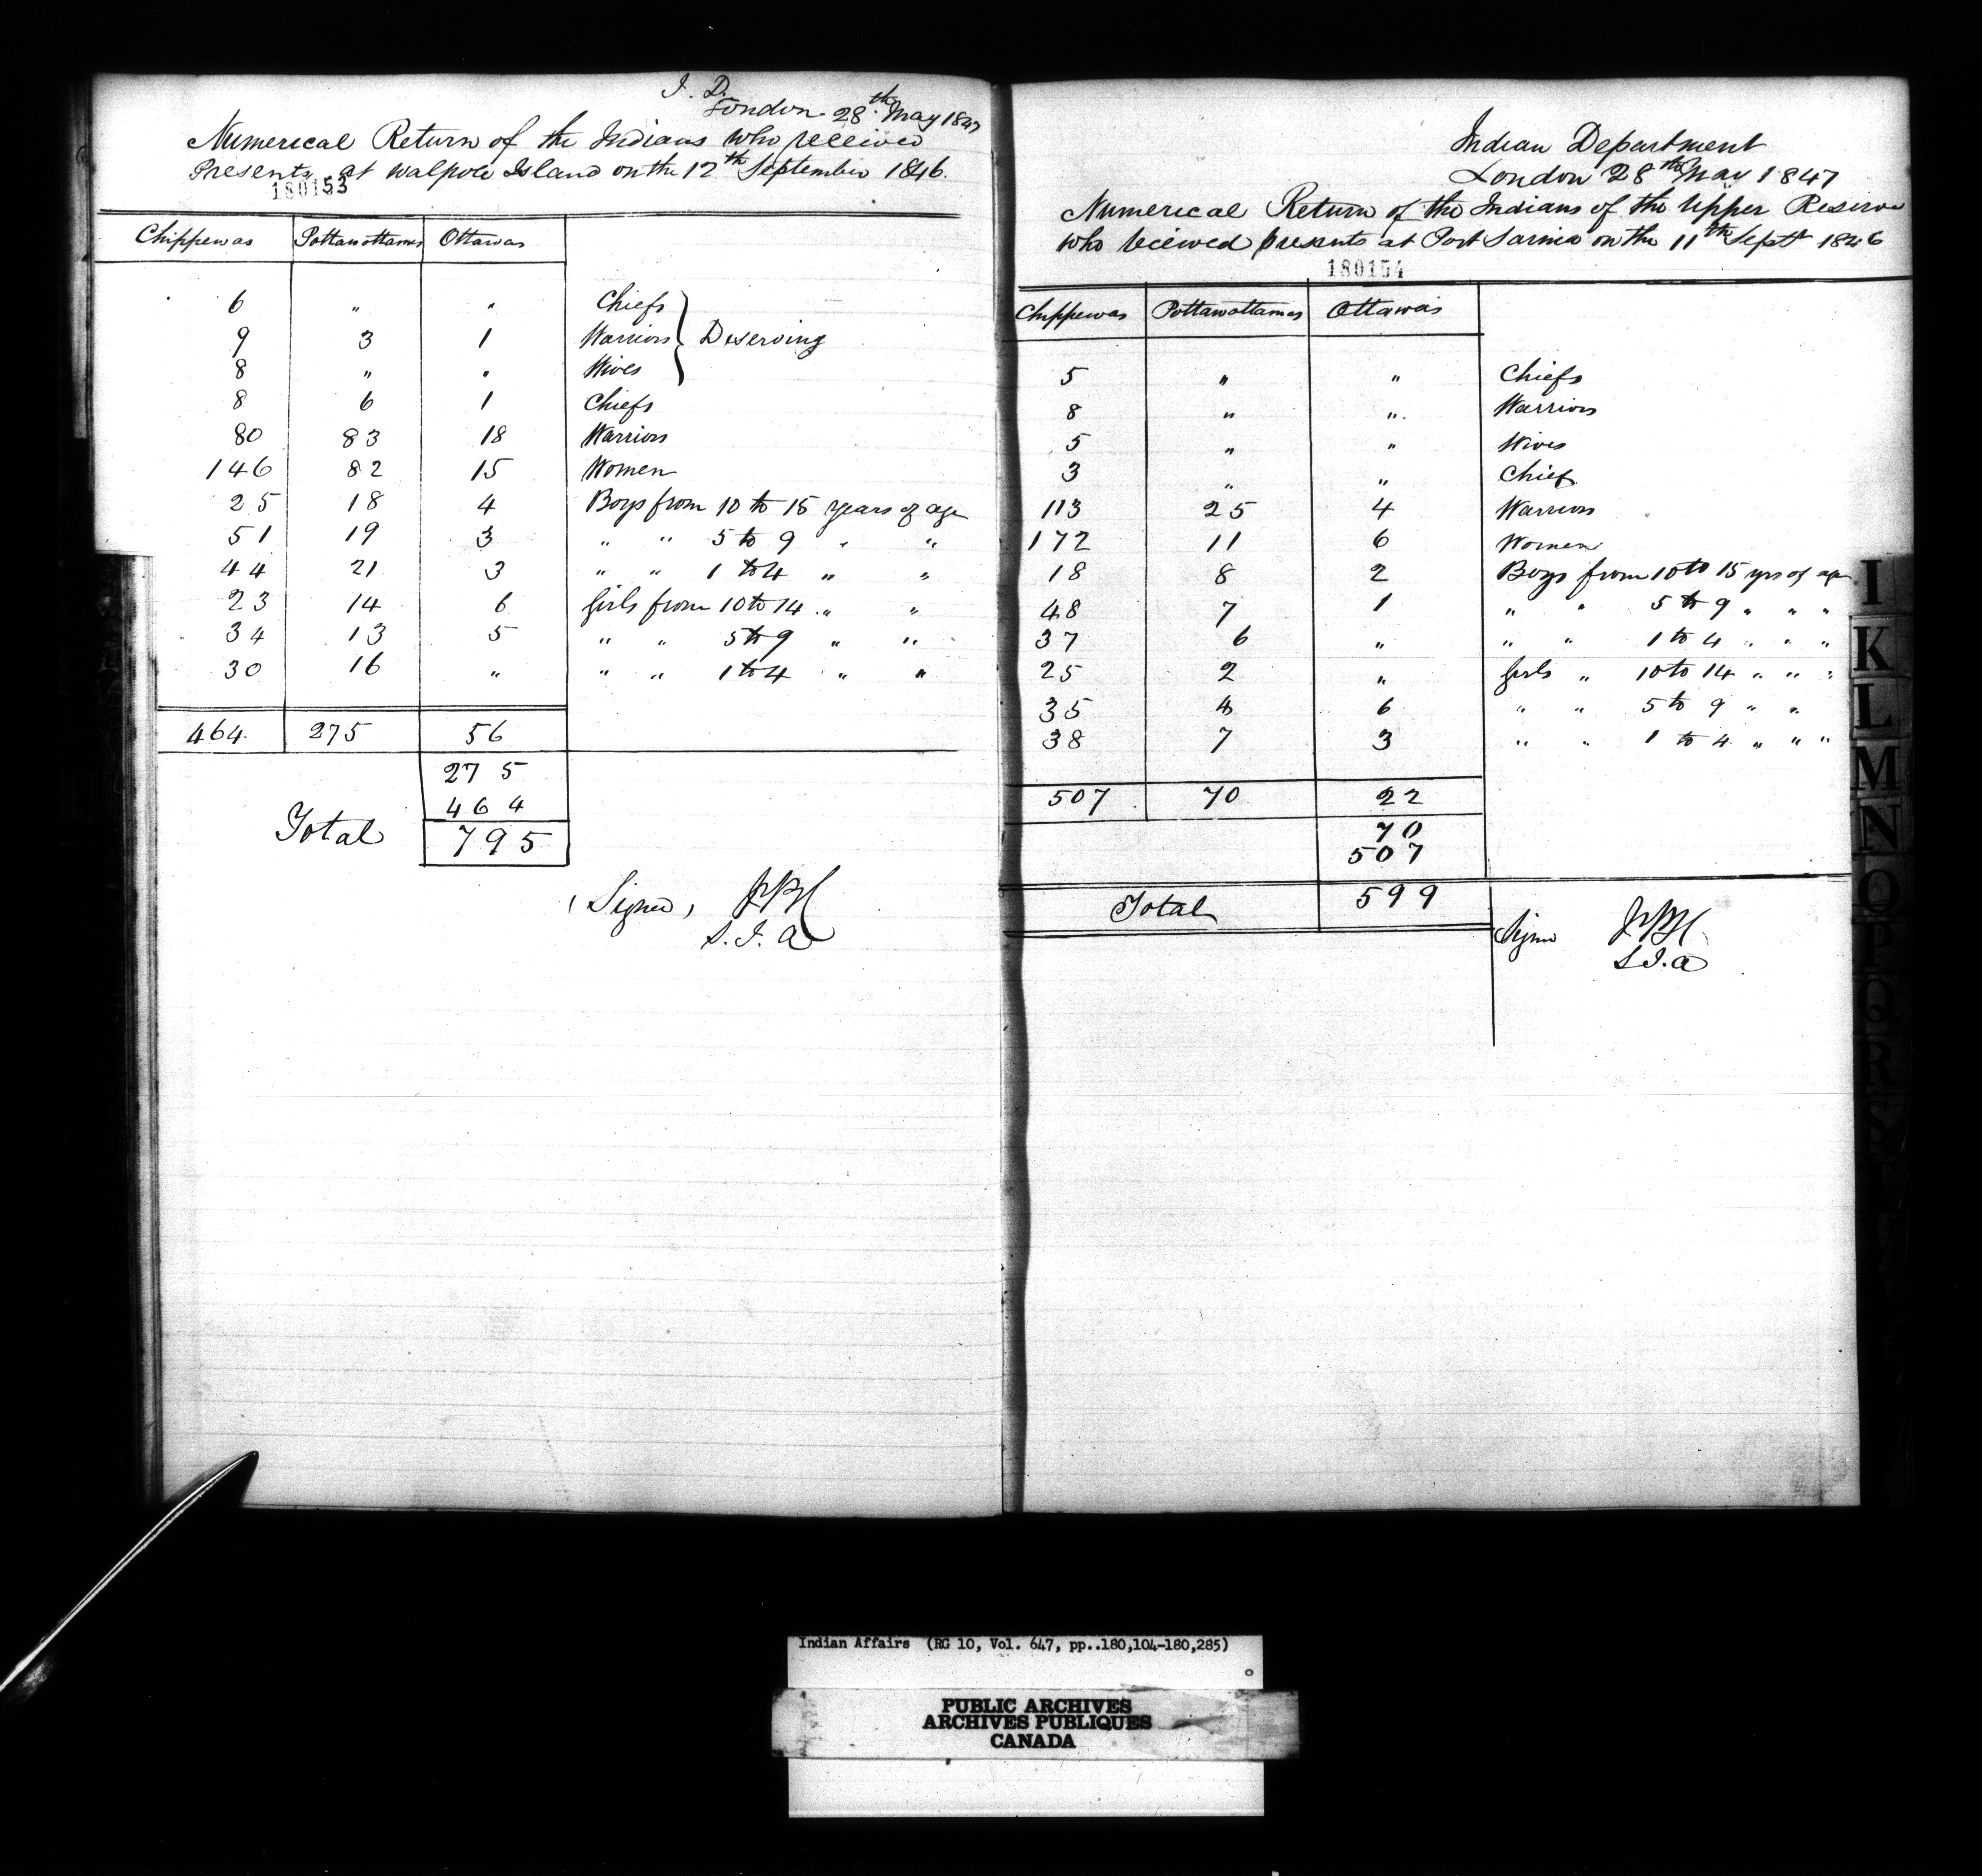 I. D.
London 28th May 1847
Numerical Return of the Indians who received
Presents at Walpole Island on the 12th September 1846.
180153
Chippewas Pottawottamies Ottawas
6 " " Chiefs
9 3 1 Warriors } Deserving
8 " " Wives
8 6 1 Chiefs
80 83 18 Warriors
146 82 15 Women
25 18 4 Boys from 10 to 15 years of age
51 19 3 " " 5 to 9 " "
44 21 3 " " 1 to 4 " "
23 14 6 Girls from 10 to 14 " "
34 13 5 " " 5 to 9 " "
30 16 " " " 1 to 4 " "
464 275 56
275
464
Total 795
(Signed)
S. I. A
Indian Department
London 28th May 1847
Numerical Return of the Indians of the Upper Reserve
who reciewed presents at Port Sarnia on the 11th Septr 1846
180154
Chippewas Pottawottamas Ottawas
5 " " Chiefs
8 " " Warriors
5 " " Wives
3 " " Chief
113 25 4 Warriors
172 11 6 Women
18 8 2 Boys from 10 to 15 yrs of age
48 7 1 " " 5 to 9 " " "
37 6 " " " 1 to 4 " " "
25 2 " Girls " 10 to 14 " " "
35 4 6 " " 5 to 9 " "
38 7 3 " " 1 to 4 " " "
507 70 22
70
507
Total 599
Signd
S I. A
I
K
L
M
N
O
P
Q
R
Indian Affairs (RG 10, Vol. 647, pp..180,104-180,285)
PUBLIC ARCHIVES
ARCHIVES PUBLIQUES
CANADA